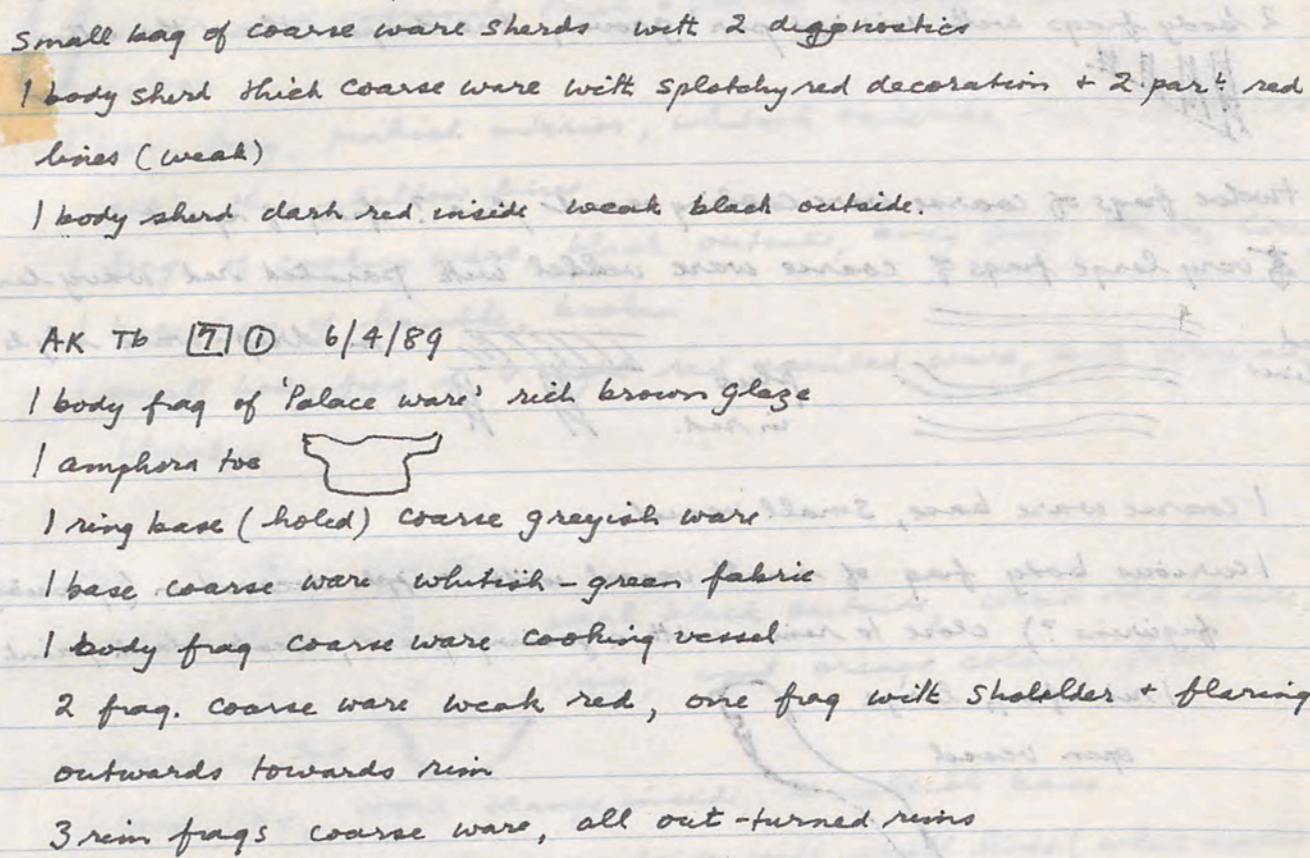 Small bag of coarse ware sherds with 2 diagnostics
1 body sherd thick coarse ware with splotchy red decoration + 2 part red
lines (weak)
1 body sherd dark red inside weak black outside.
AK Tb 7 1 6/4/89
1 body frag of 'Palace ware' rich brown glaze
1 amphora toe
1 ring base (holed) coarse greyish ware
1 base coarse ware whitish-green fabric
1 body frag coarse ware cooking vessel
2 frag. coarse ware weak red, one frag with sholelder + flaring
outwards towards rim
3 rim frags coarse ware, all out-turned rims